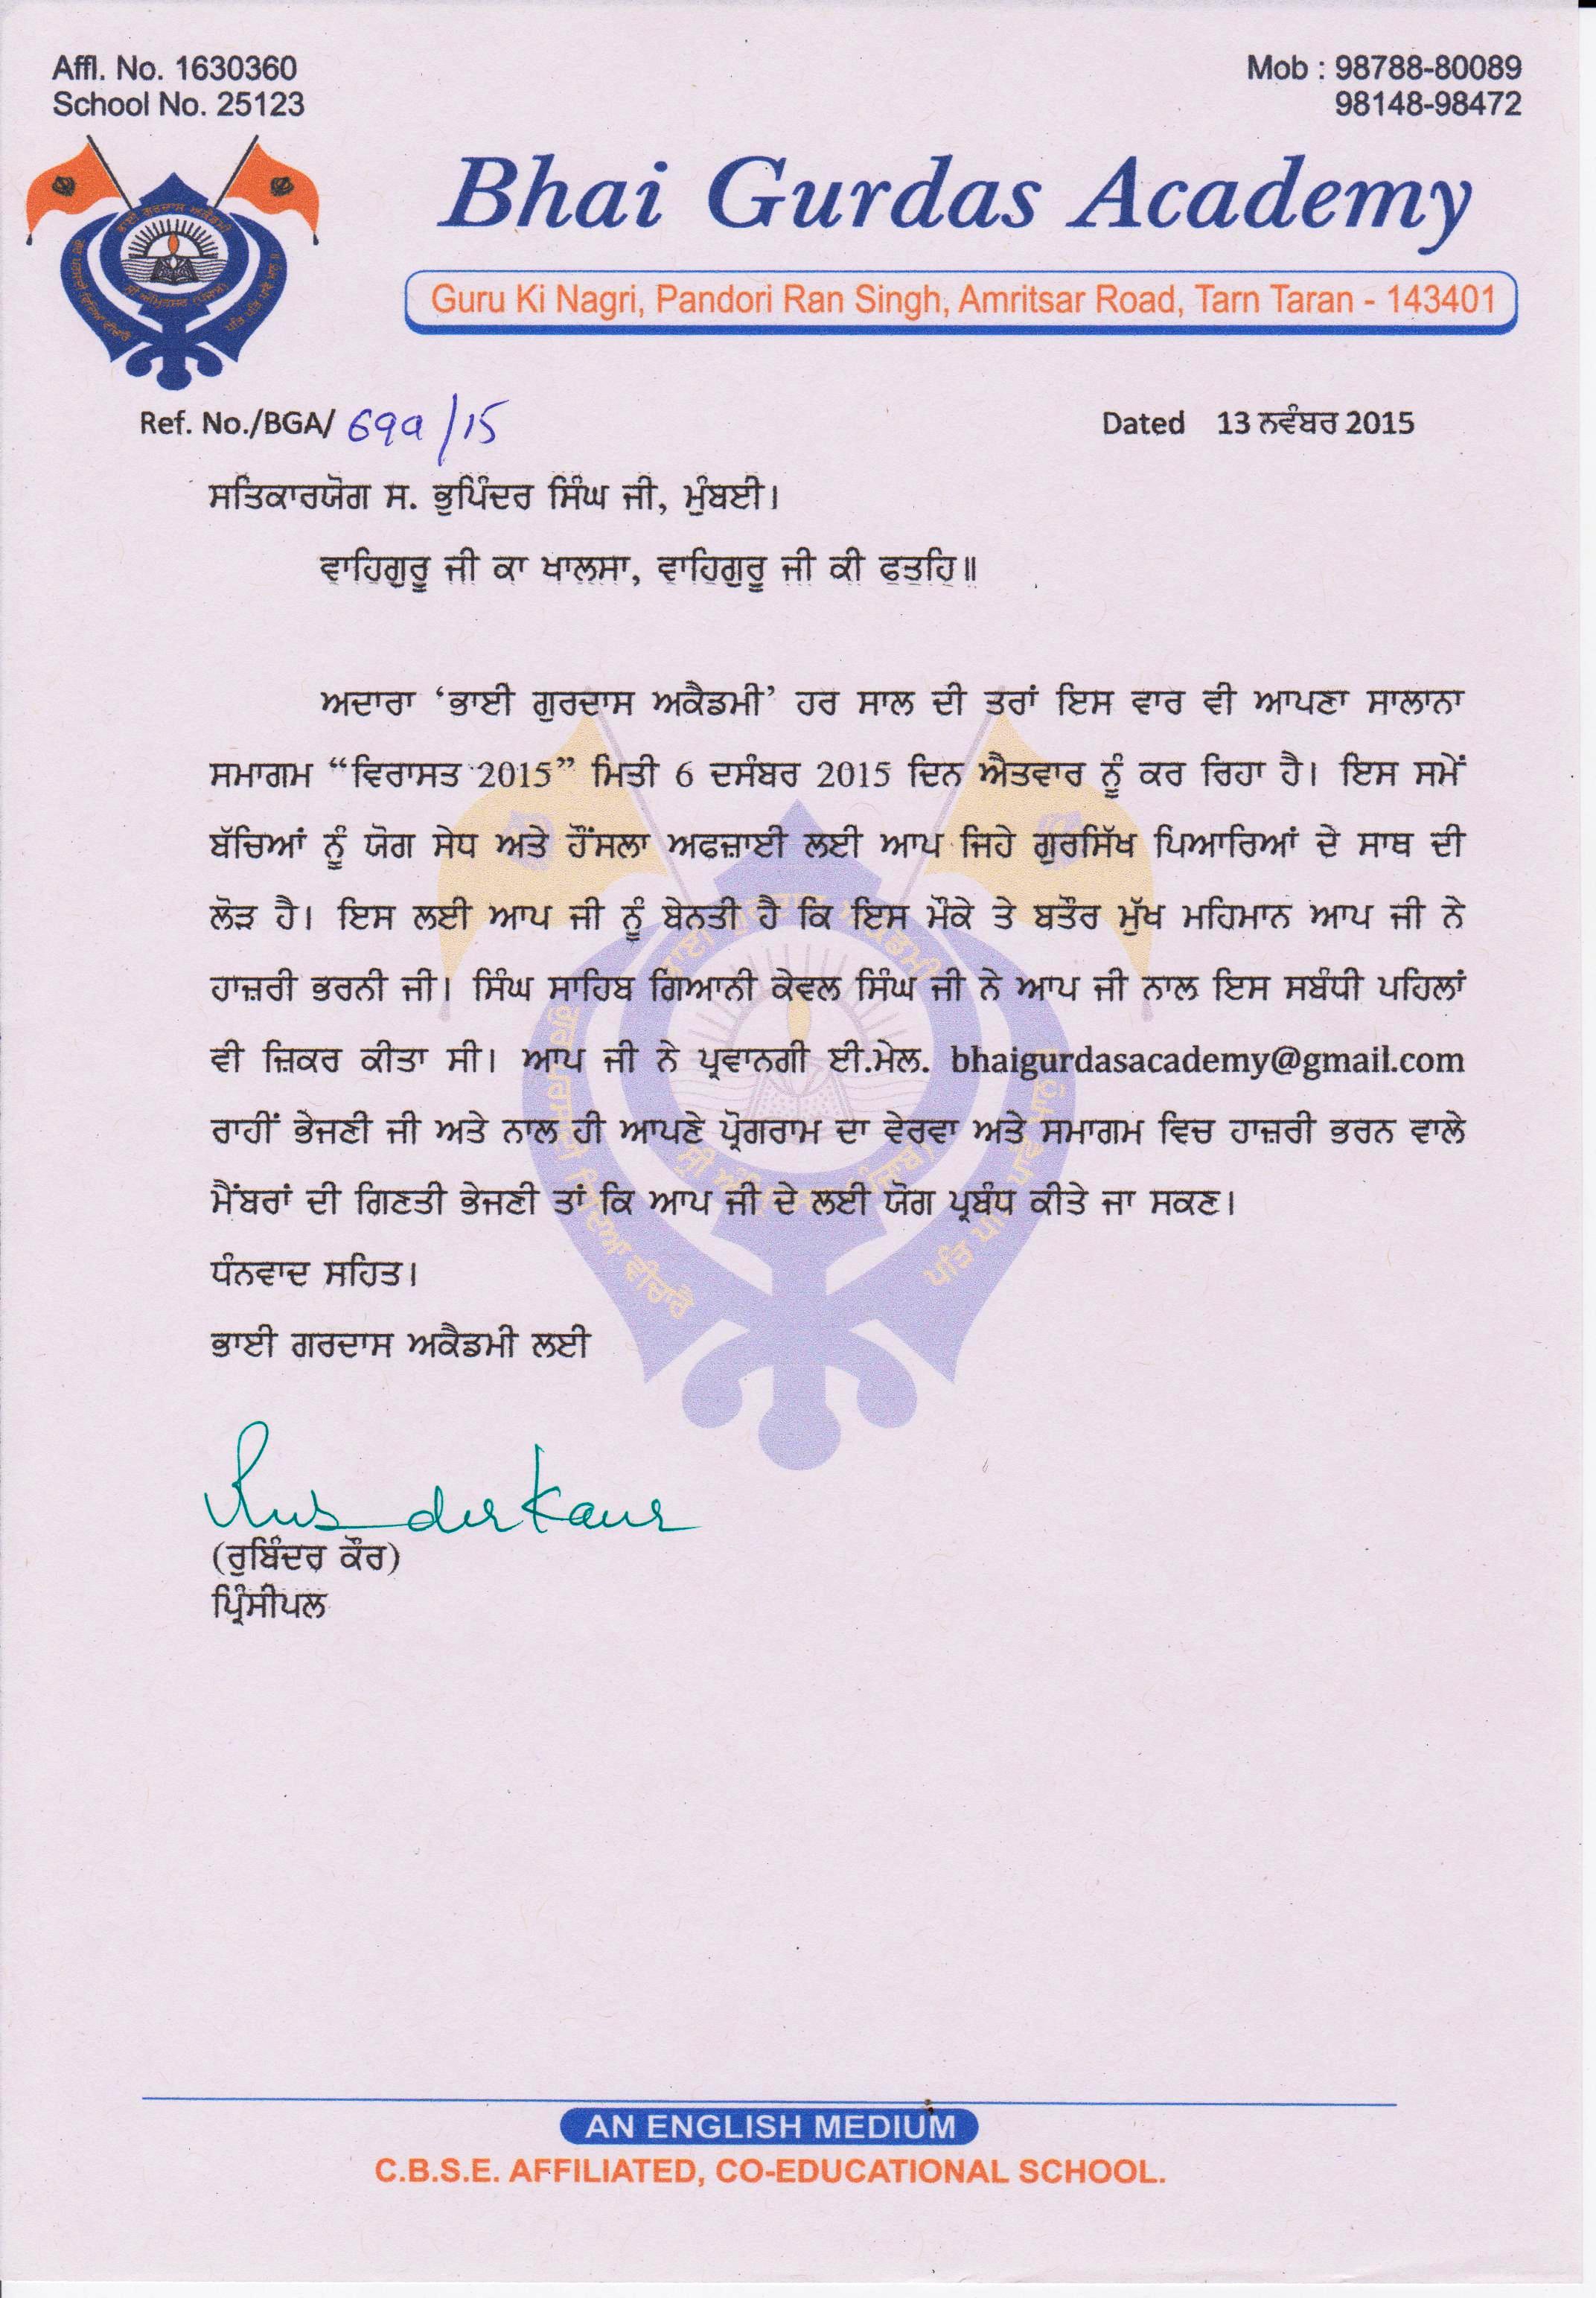 Affl. No. 1630360
School No. 25123
Mob : 98788-80089
98148-98472
Bhai Gurdas Academy
Guru Ki Nagri, Pandori Ran Singh, Amritsar Road, Tarn Taran - 143401
Ref. No./BGA/ 699/15
Dated 13 ਨਵੰਬਰ 2015
ਸਤਿਕਾਰਯੋਗ ਸ. ਭੁਪਿੰਦਰ ਸਿੰਘ ਜੀ, ਮੁੰਬਈ।
ਵਾਹਿਗੁਰੂ ਜੀ ਕਾ ਖਾਲਸਾ, ਵਾਹਿਗੁਰੂ ਜੀ ਕੀ ਫਤਹਿ॥
ਅਦਾਰਾ ‘ਭਾਈ ਗੁਰਦਾਸ ਅਕੈਡਮੀ’ ਹਰ ਸਾਲ ਦੀ ਤਰਾਂ ਇਸ ਵਾਰ ਵੀ ਆਪਣਾ ਸਾਲਾਨਾ
ਸਮਾਗਮ “ਵਿਰਾਸਤ 2015” ਮਿਤੀ 6 ਦਸੰਬਰ 2015 ਦਿਨ ਐਤਵਾਰ ਨੂੰ ਕਰ ਰਿਹਾ ਹੈ। ਇਸ ਸਮੇਂ
ਬੱਚਿਆਂ ਨੂੰ ਯੋਗ ਸੇਧ ਅਤੇ ਹੌਂਸਲਾ ਅਫਜ਼ਾਈ ਲਈ ਆਪ ਜਿਹੇ ਗੁਰਸਿੱਖ ਪਿਆਰਿਆਂ ਦੇ ਸਾਥ ਦੀ
ਲੋੜ ਹੈ। ਇਸ ਲਈ ਆਪ ਜੀ ਨੂੰ ਬੇਨਤੀ ਹੈ ਕਿ ਇਸ ਮੌਕੇ ਤੇ ਬਤੌਰ ਮੁੱਖ ਮਹਿਮਾਨ ਆਪ ਜੀ ਨੇ
ਹਾਜ਼ਰੀ ਭਰਨੀ ਜੀ। ਸਿੰਘ ਸਾਹਿਬ ਗਿਆਨੀ ਕੇਵਲ ਸਿੰਘ ਜੀ ਨੇ ਆਪ ਜੀ ਨਾਲ ਇਸ ਸਬੰਧੀ ਪਹਿਲਾਂ
ਵੀ ਜ਼ਿਕਰ ਕੀਤਾ ਸੀ। ਆਪ ਜੀ ਨੇ ਪ੍ਰਵਾਨਗੀ ਈ.ਮੇਲ. bhaigurdasacademy@gmail.com
ਰਾਹੀਂ ਭੇਜਣੀ ਜੀ ਅਤੇ ਨਾਲ ਹੀ ਆਪਣੇ ਪ੍ਰੋਗਰਾਮ ਦਾ ਵੇਰਵਾ ਅਤੇ ਸਮਾਗਮ ਵਿਚ ਹਾਜ਼ਰੀ ਭਰਨ ਵਾਲੇ
ਮੈਂਬਰਾਂ ਦੀ ਗਿਣਤੀ ਭੇਜਣੀ ਤਾਂ ਕਿ ਆਪ ਜੀ ਦੇ ਲਈ ਯੋਗ ਪ੍ਰਬੰਧ ਕੀਤੇ ਜਾ ਸਕਣ।
ਧੰਨਵਾਦ ਸਹਿਤ।
ਭਾਈ ਗਰਦਾਸ ਅਕੈਡਮੀ ਲਈ
(ਰੁਬਿੰਦਰ ਕੌਰ)
ਪ੍ਰਿੰਸੀਪਲ
AN ENGLISH MEDIUM
C.B.S.E. AFFILIATED, CO-EDUCATIONAL SCHOOL.